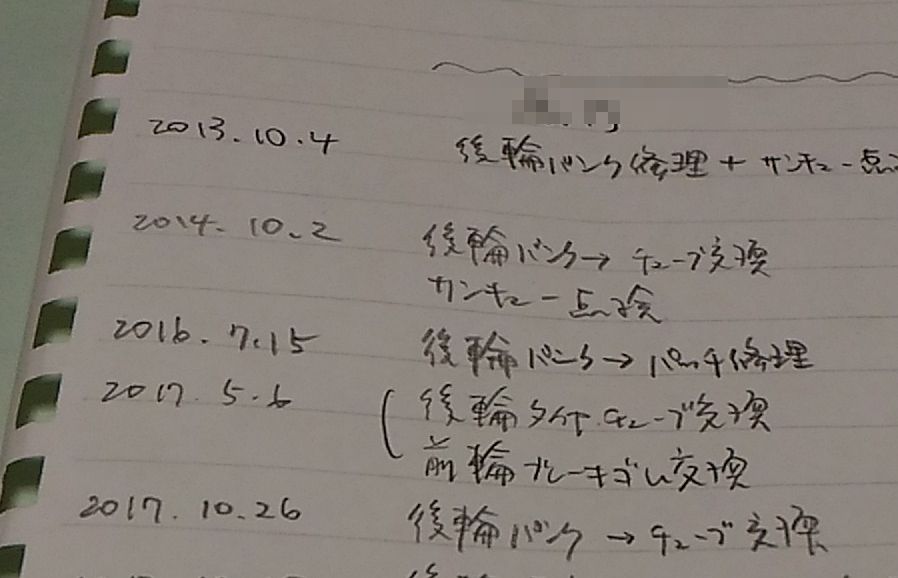 2013.10.4 後輪パンク修理 + サンキュー点
2014.10.2 後輪パンク→チューブ交換
サンキュー点検
2016.7.15 後輪パンク→パッチ修理
2017.5.6 後輪タイヤ.チューブ交換
前輪ブレーキゴム交換
2017.10.26 後輪パンク→チューブ交換